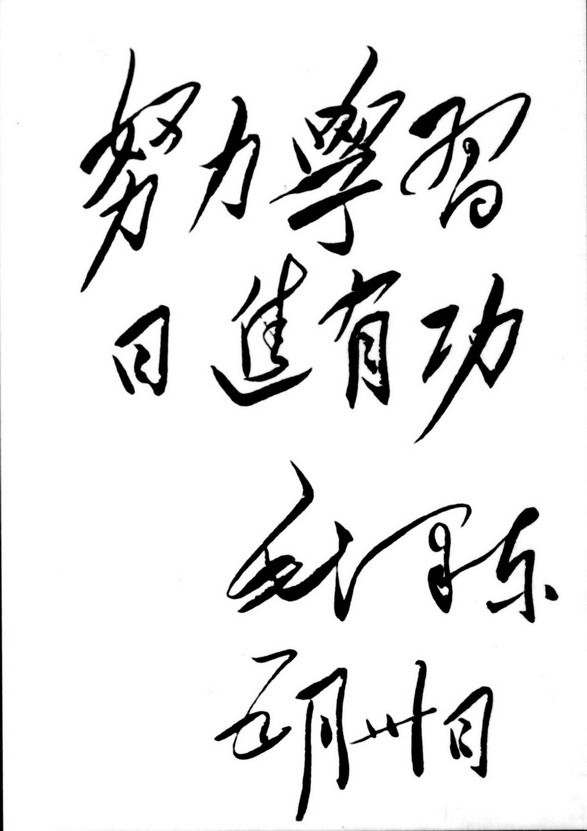 努力學習
日進有功
毛澤东
五月卅日